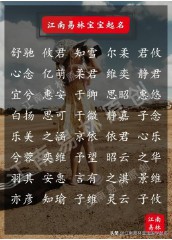 江南易林宝宝起名
舒驰 攸君 知雪 尔柔 君攸
心念 亿萌 柔君 维奕 静君
宜兮 惠安 于卿 思昭 惠悠
白杨 思可 于微 静嘉 子念
乐美 之涵 京依 依君 心乐
兮裳 奕维 于望 昭云 之华
羽其 安惠 言有 之淇 景维
亦彦 知瑜 子维 灵云 子攸
江南
易林